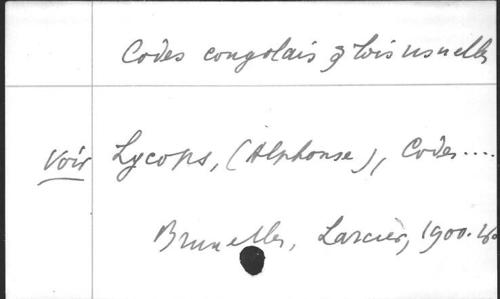 Codes congolais & lois usuelles
Voir Lycops, (Alphonse), Codes....
Bruxelles, Larcier, 1900.